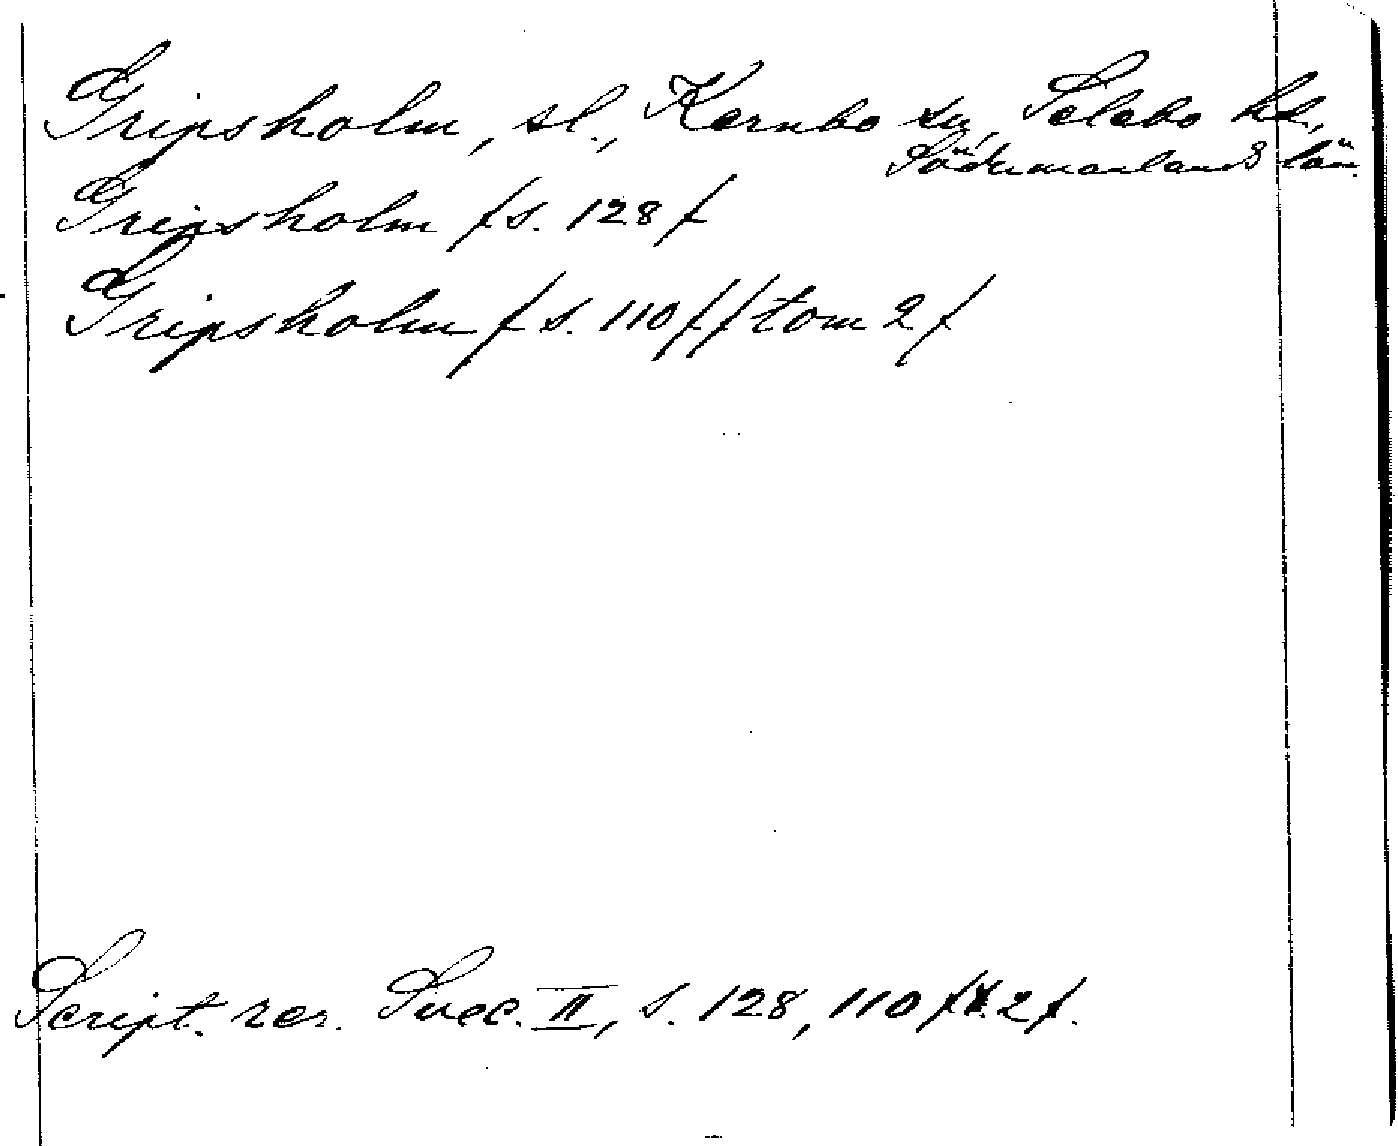 Gripsholm, sl., Kernbo sn, Selebo hd,
Södermanlands län.
Gripsholm /s. 128/
Gripsholm /s. 110/ /tom 2/
Script. rer. Svec. II, s. 128, 110 /t. 2/.